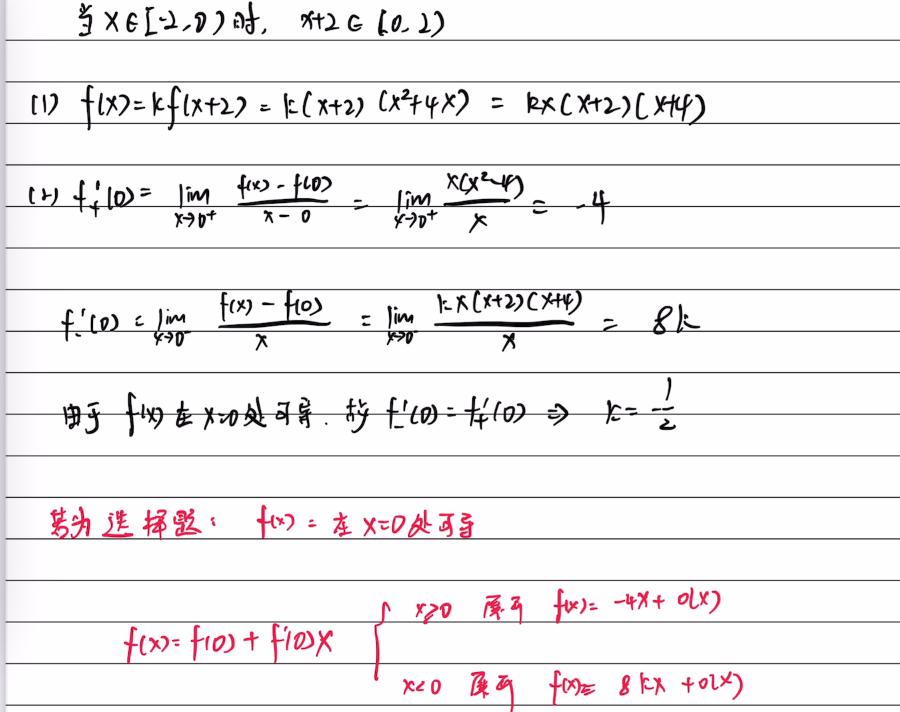 当 x∈[-2,0) 时, x+2∈[0,2)
(1) f(x)=kf(x+2)=k(x+2)(x²+4x)=kx(x+2)(x+4)
(2) f₊'(0)= lim_{x→0⁺} (f(x)-f(0))/(x-0) = lim_{x→0⁺} x(x²-4)/x = -4
f₋'(0)= lim_{x→0⁻} (f(x)-f(0))/x = lim_{x→0⁻} kx(x+2)(x+4)/x = 8k
由于 f(x) 在 x=0 处可导. 故 f₋'(0)=f₊'(0) ⇒ k=-1/2
若为选择题: f(x)= 在 x=0 处可导
x≥0 f(x)= -4x+o(x)
f(x)=f(0)+f'(0)x {
x<0 f(x)= 8kx+o(x)